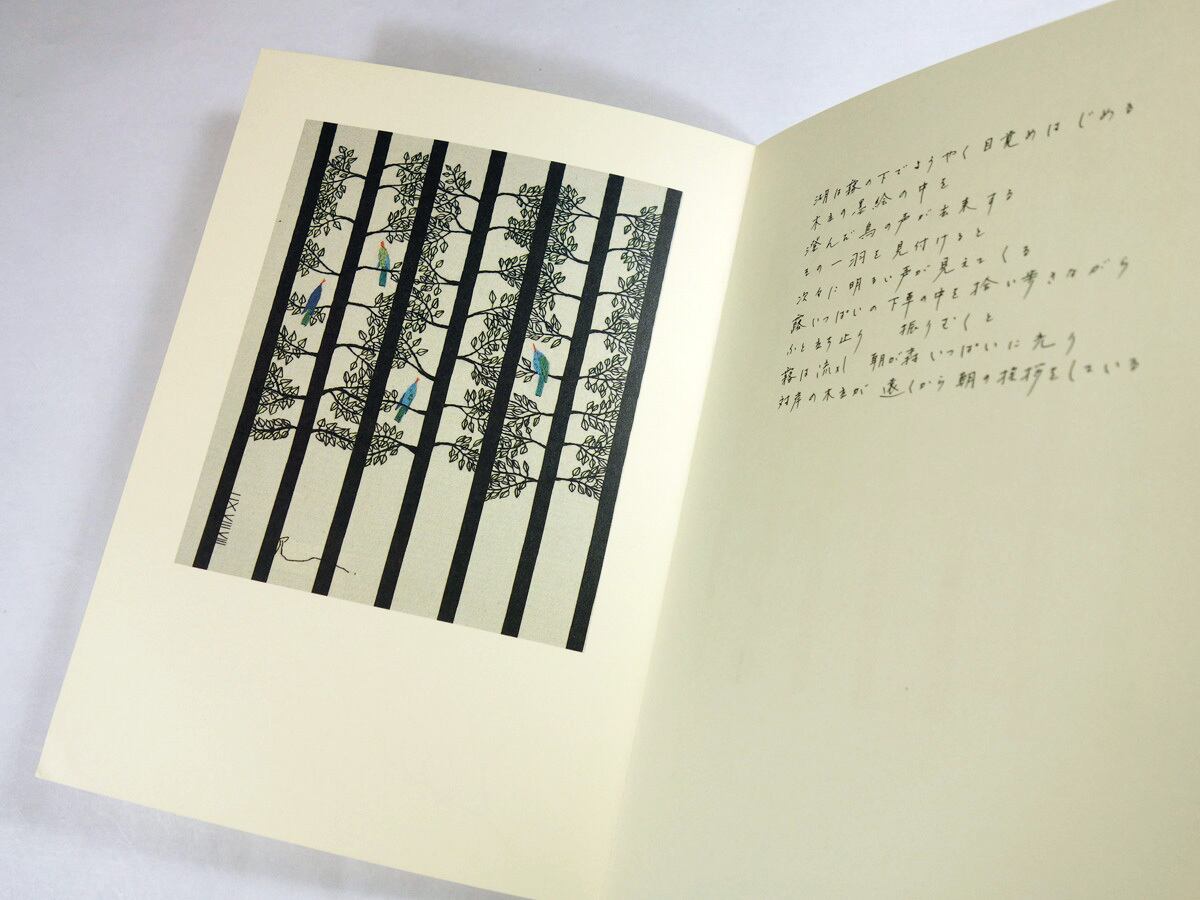 湖は霧の下でようやく目覚めはじめる
木立の墨絵の中を
澄んだ鳥の声が去来する
その一羽を見付けると
次々に明るい声が見えてくる
露いっぱいの下草の中を拾い歩きながら
ふと立ち止り 振りむくと
霧は流れ 朝が森いっぱいに光り
対岸の木立が遠くから朝の挨拶をしている